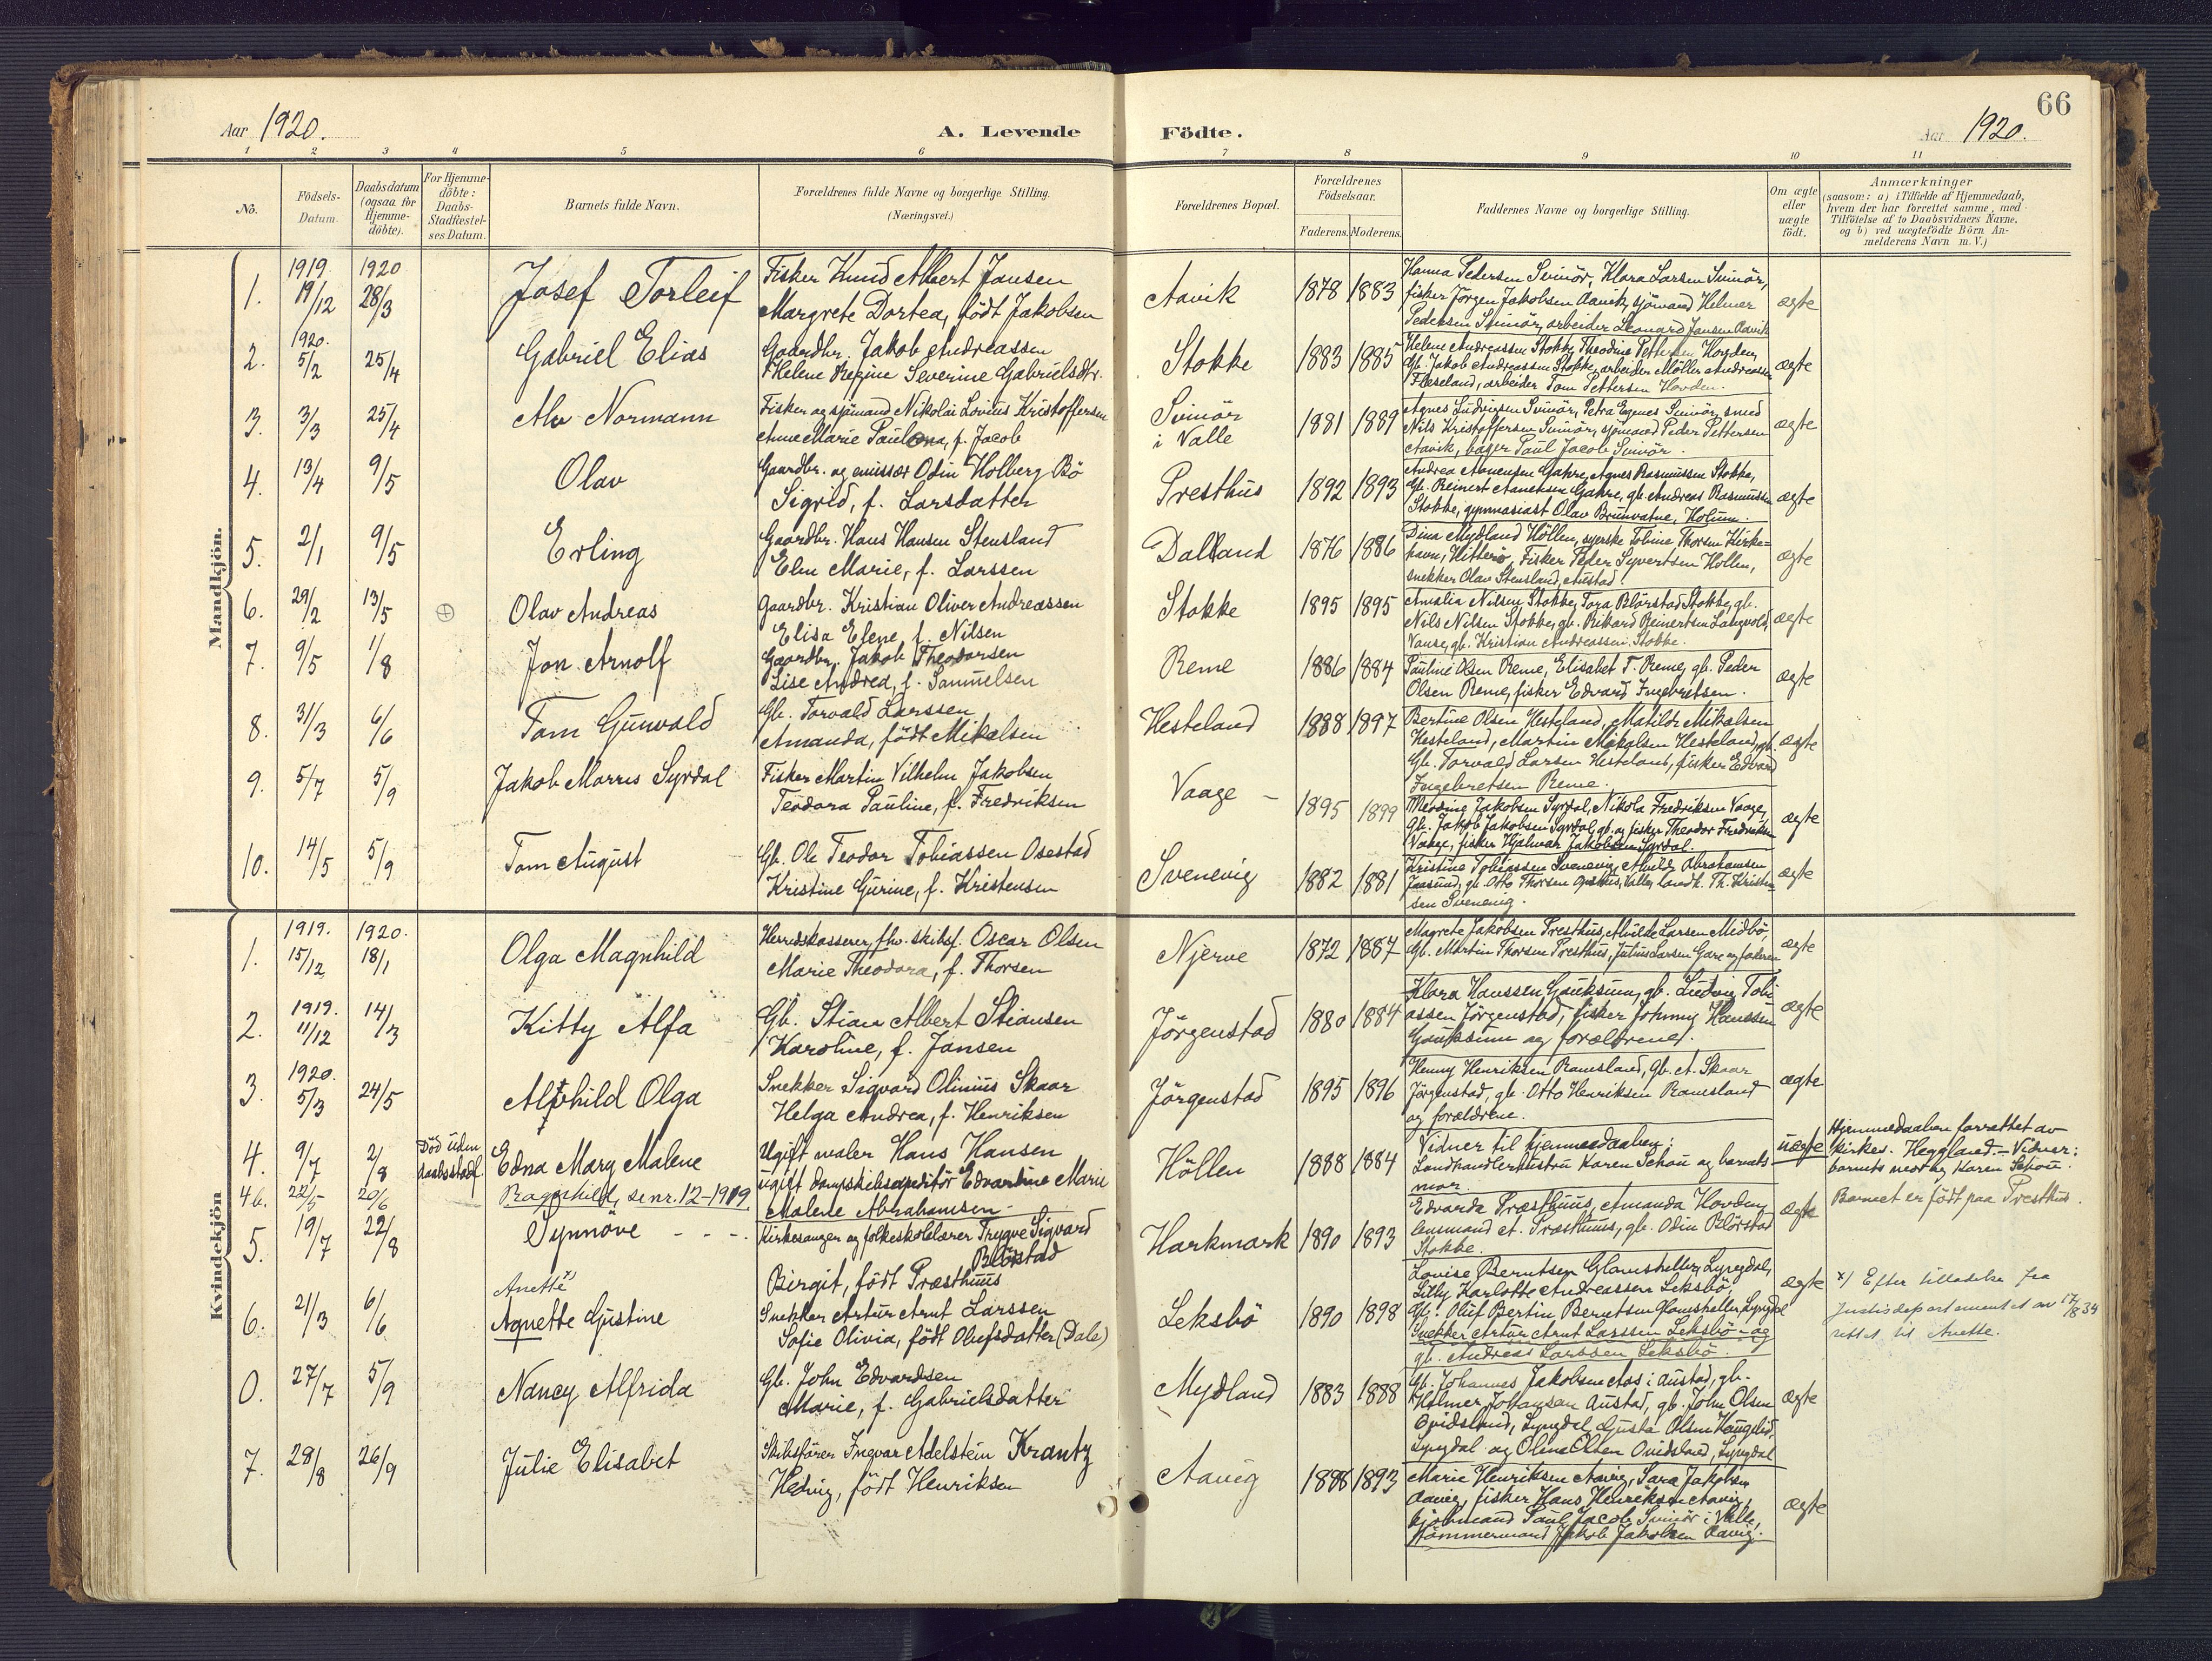 66
Aar 1920.
A. Levende Födte.
Aar 1920.
1 2 3 4 5 6 7 8 9 10 11
No.
Födsels-
Datum.
Daabsdatum
(ogsaa for
Hjemme-
döbte).
For Hjemme-
döbte:
Daabs-
Stadfæstel-
ses Datum.
Barnets fulde Navn.
Forældrenes fulde Navne og borgerlige Stilling.
(Næringsvei.)
Forældrenes Bopæl.
Forældrenes
Födselsaar.
Faderens. Moderens.
Faddernes Navne og borgerlige Stilling.
Om ægte
eller
uægte
födt.
Anmærkninger
(saasom: a) i Tilfælde af Hjemmedaab,
hvem der har forrettet samme, med
Tilföielse af to Daabsvidners Navne,
og b) ved uægtefödte Börn An-
melderens Navn m. V.)
Mandkjön.
1919. 1920
1. 19/12 28/3 Josef Torleif
Fisker Knud Albert Jansen
Margrete Dortea, födt Jakobsen
Aavik 1878 1883
Hanna Pedersen Svinör, Klara Larsen Svinör,
fisker Jörgen Jakobsen Aavik, sjömand Helmer
Pedersen Svinör, arbeider Leonard Jansen Aavik
ægte
1920.
2. 5/2 25/4 Gabriel Elias
Gaardbr. Jakob Andreassen
Helene Regine Severine Gabrielsdtr.
Stokke 1883 1885
Helene Andreassen Stokke, Theodine Pettersen Hovden,
Gb. Jakob Andreassen Stokke, arbeider Möller Andreassen
Flæseland, arbeider Tom Pettersen Hovden.
ægte
3. 3/3 25/4 Alv Normann
Fisker og sjömand Nikolai Lovius Kristoffersen
Anne Marie Paulona, f. Jacob
Svinör
i Valle
1881 1889
Agnes Ludvigsen Svinör, Petra Egenes Svinör, smed
Nils Kristoffersen Svinör, sjömand Peder Pettersen
Aavik, bager Paul Jacob Svinör.
ægte
4. 13/4 9/5 Olav
Gaardbr. og emissær Odin Holberg Bö
Sigrid, f. Larsdatter
Presthus 1892 1893
Andrea Aanensen Gahre, Agnes Rasmussen Stokke,
Gb. Reinert Aanensen Gahre, gb. Andreas Rasmussen
Stokke, gymnasiast Olav Brunvatne, Holum.
ægte
5. 2/1 9/5 Erling
Gaardbr. Hans Hansen Stensland
Elen Marie, f. Larssen
Dalland 1876 1886
Dina Mydland Höllen, syerske Tobine Thorsen Kirke-
havn, Hitterö, Fisker Peder Syvertsen Höllen,
snekker Olav Stensland, Austad.
ægte
6. 29/2 13/5 Olav Andreas
Gaardbr. Kristian Oliver Andreassen
Elisa Elene, f. Nilsen
Stokke 1895 1895
Amalia Nilsen Stokke, Tora Blörstad Stokke, gb.
Nils Nilsen Stokke, gb. Rikard Reinertsen Langvold,
Vanse, gb. Kristian Andreassen Stokke.
ægte
7. 9/5 1/8 Jon Arnolf
Gaardbr. Jakob Theodorsen
Lise Andrea, f. Samuelsen
Reme 1886 1884
Pauline Olsen Reme, Elisabet T. Reme, gb. Peder
Olsen Reme, fisker Edvard Ingebretsen.
ægte
8. 31/3 6/6 Tom Gunvald
Gb. Torvald Larssen
Amanda, födt Mikalsen
Hesteland 1888 1897
Bertine Olsen Hesteland, Matilde Mikalsen
Hesteland, Martin Mikalsen Hesteland, gb.
Gb. Torvald Larsen Hesteland, fisker Edvard
Ingebretsen Reme.
ægte
9. 5/7 5/9 Jakob Morris Syrdal
Fisker Martin Vilhelm Jakobsen
Teodora Pauline, f. Fredriksen
Vaage - 1895 1899
Jakobsen Syrdal, Nikola Fredriksen Vaage,
Gb. Jakob Jakobsen Syrdal, gb. og fisker Theodor Fredriksen
Vaage, fisker Hjalmar Jakobsen Syrdal.
ægte
10. 14/5 5/9 Tom August
Gb. Ole Teodor Tobiassen Osestad
Kristine Gurine, f. Kristensen
Svenevig 1882 1881
Kristine Tobiassen Svenevig, Alvilde Abrahamsen
gb. Otto Thorsen Valle, landh. Th. Kristen
sen Svenevig.
ægte
Kvindekjön
1919. 1920.
1. 15/12 18/1 Olga Magnhild
Herredskasserer, fhv. skibsf. Oscar Olsen
Marie Theodora, f. Thorsen
Njerve 1872 1887
Magrete Jakobsen Presthus, Alvilde Larsen Midbö,
Gb. Martin Thorsen Presthus, Julius Larsen Gare og faderen
ægte
1919.
2. 11/12 14/3 Kitty Alfa
Gb. Stian Albert Stiansen
Karoline, f. Jansen
Jörgenstad 1880 1884
Klara Hanssen Gauksum, gb. Ludvig Tobi
assen Jörgenstad, fisker Johnny Hanssen
Gauksum og forældrene.
ægte
1920.
3. 5/3 24/5 Alfhild Olga
Snekker Sigvard Olinius Skaar
Helga Andrea, f. Henriksen
Jörgenstad 1895 1896
Henny Henriksen Ramsland, gb. A. Skaar
Jörgenstad, gb. Otto Henriksen Ramsland
og forældrene.
ægte
4. 9/7 2/8 Död uden
daabsstadf.
Edna Mary Malene
Ugift maler Hans Hansen
ugift dampskibsexpeditör Edvardine Marie
Malene Abrahamsen -
Höllen 1888 1884
Vidner til hjemmedaaben:
Landhandlerhustru Karen Schou og barnets
mor.
uægte
Hjemmedaaben forrettet av
kirkes. Heggland. - Vidner:
barnets mor og Karen Schou.
Barnet er födt paa Presthus.
4b. 22/5 20/6 Ragnhild, se nr. 12 - 1919
5. 19/7 22/8 Synnöve - - -
Kirkesanger og folkeskolelærer Trygve Sigvard
Blörstad
Birgit, födt Præsthuus
Harkmark 1890 1893
Edvarda Præsthuus, Amanda Hovden,
lensmand A. Præsthuus, gb. Odin Blörstad
Stokke.
ægte
Anette x)
6. 21/3 6/6 Agnette Gustine
Snekker Artur Arnt Larssen
Sofie Olivia, födt Olufsdatter (Dale)
Leksbö 1890 1898
Lovise Berntsen Glomsheller, Lyngdal,
Lilly Karlotte Andreassen Leksbö,
Gb. Oluf Bertin Berntsen Glomsheller, Lyngdal
Snekker Artur Arnt Larssen Leksbö - og
gb. Andreas Larssen Leksbö.
ægte
x) Efter tilladelse fra
Justisdepartementet av 17/8 34
rettet til Anette.
0. 27/7 5/9 Nancy Alfrida
Gb. John Edvardsen
Marie, f. Gabrielsdatter
Mydland 1883 1888
Gb. Johannes Jakobsen Aas i Austad, gb.
Helmer Johansen Austad, gb. John Olsen
Ovidsland, Lyngdal, Gusta Olsen Haugelid,
Lyngdal og Oline Olsen Ovidsland, Lyngdal
ægte
7. 28/8 26/9 Julie Elisabet
Skibsförer Ingvar Adelstein Krantz
Hedvig, födt Henriksen
Aavig 1888 1893
Marie Henriksen Aavig, Sara Jakobsen
Aavig, fisker Hans Henriksen Aavig,
kjöbmand Paul Jacob Svinör i Valle,
tömmermand Jakob Jakobsen Aavig.
ægte